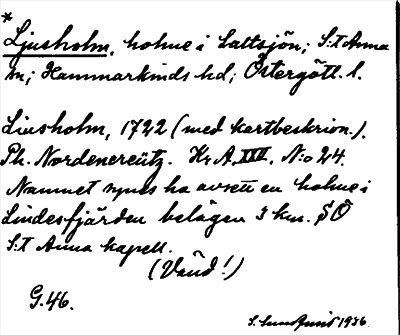 *
Ljusholm, holme i Saltsjön; S:t Anna
sn; Hammarkinds hd; Östergötl. l.
Liusholm, 1722 (med kartbeskrivn.).
Ph. Nordenereütz. Kr. A. XVI. N:o 24.
Namnet synes ha avsett en holme i
Lindesfjärden belägen 3 km. SÖ
S:t Anna kapell.
(Vänd!)
G. 46.
S. Lundquist 1936.